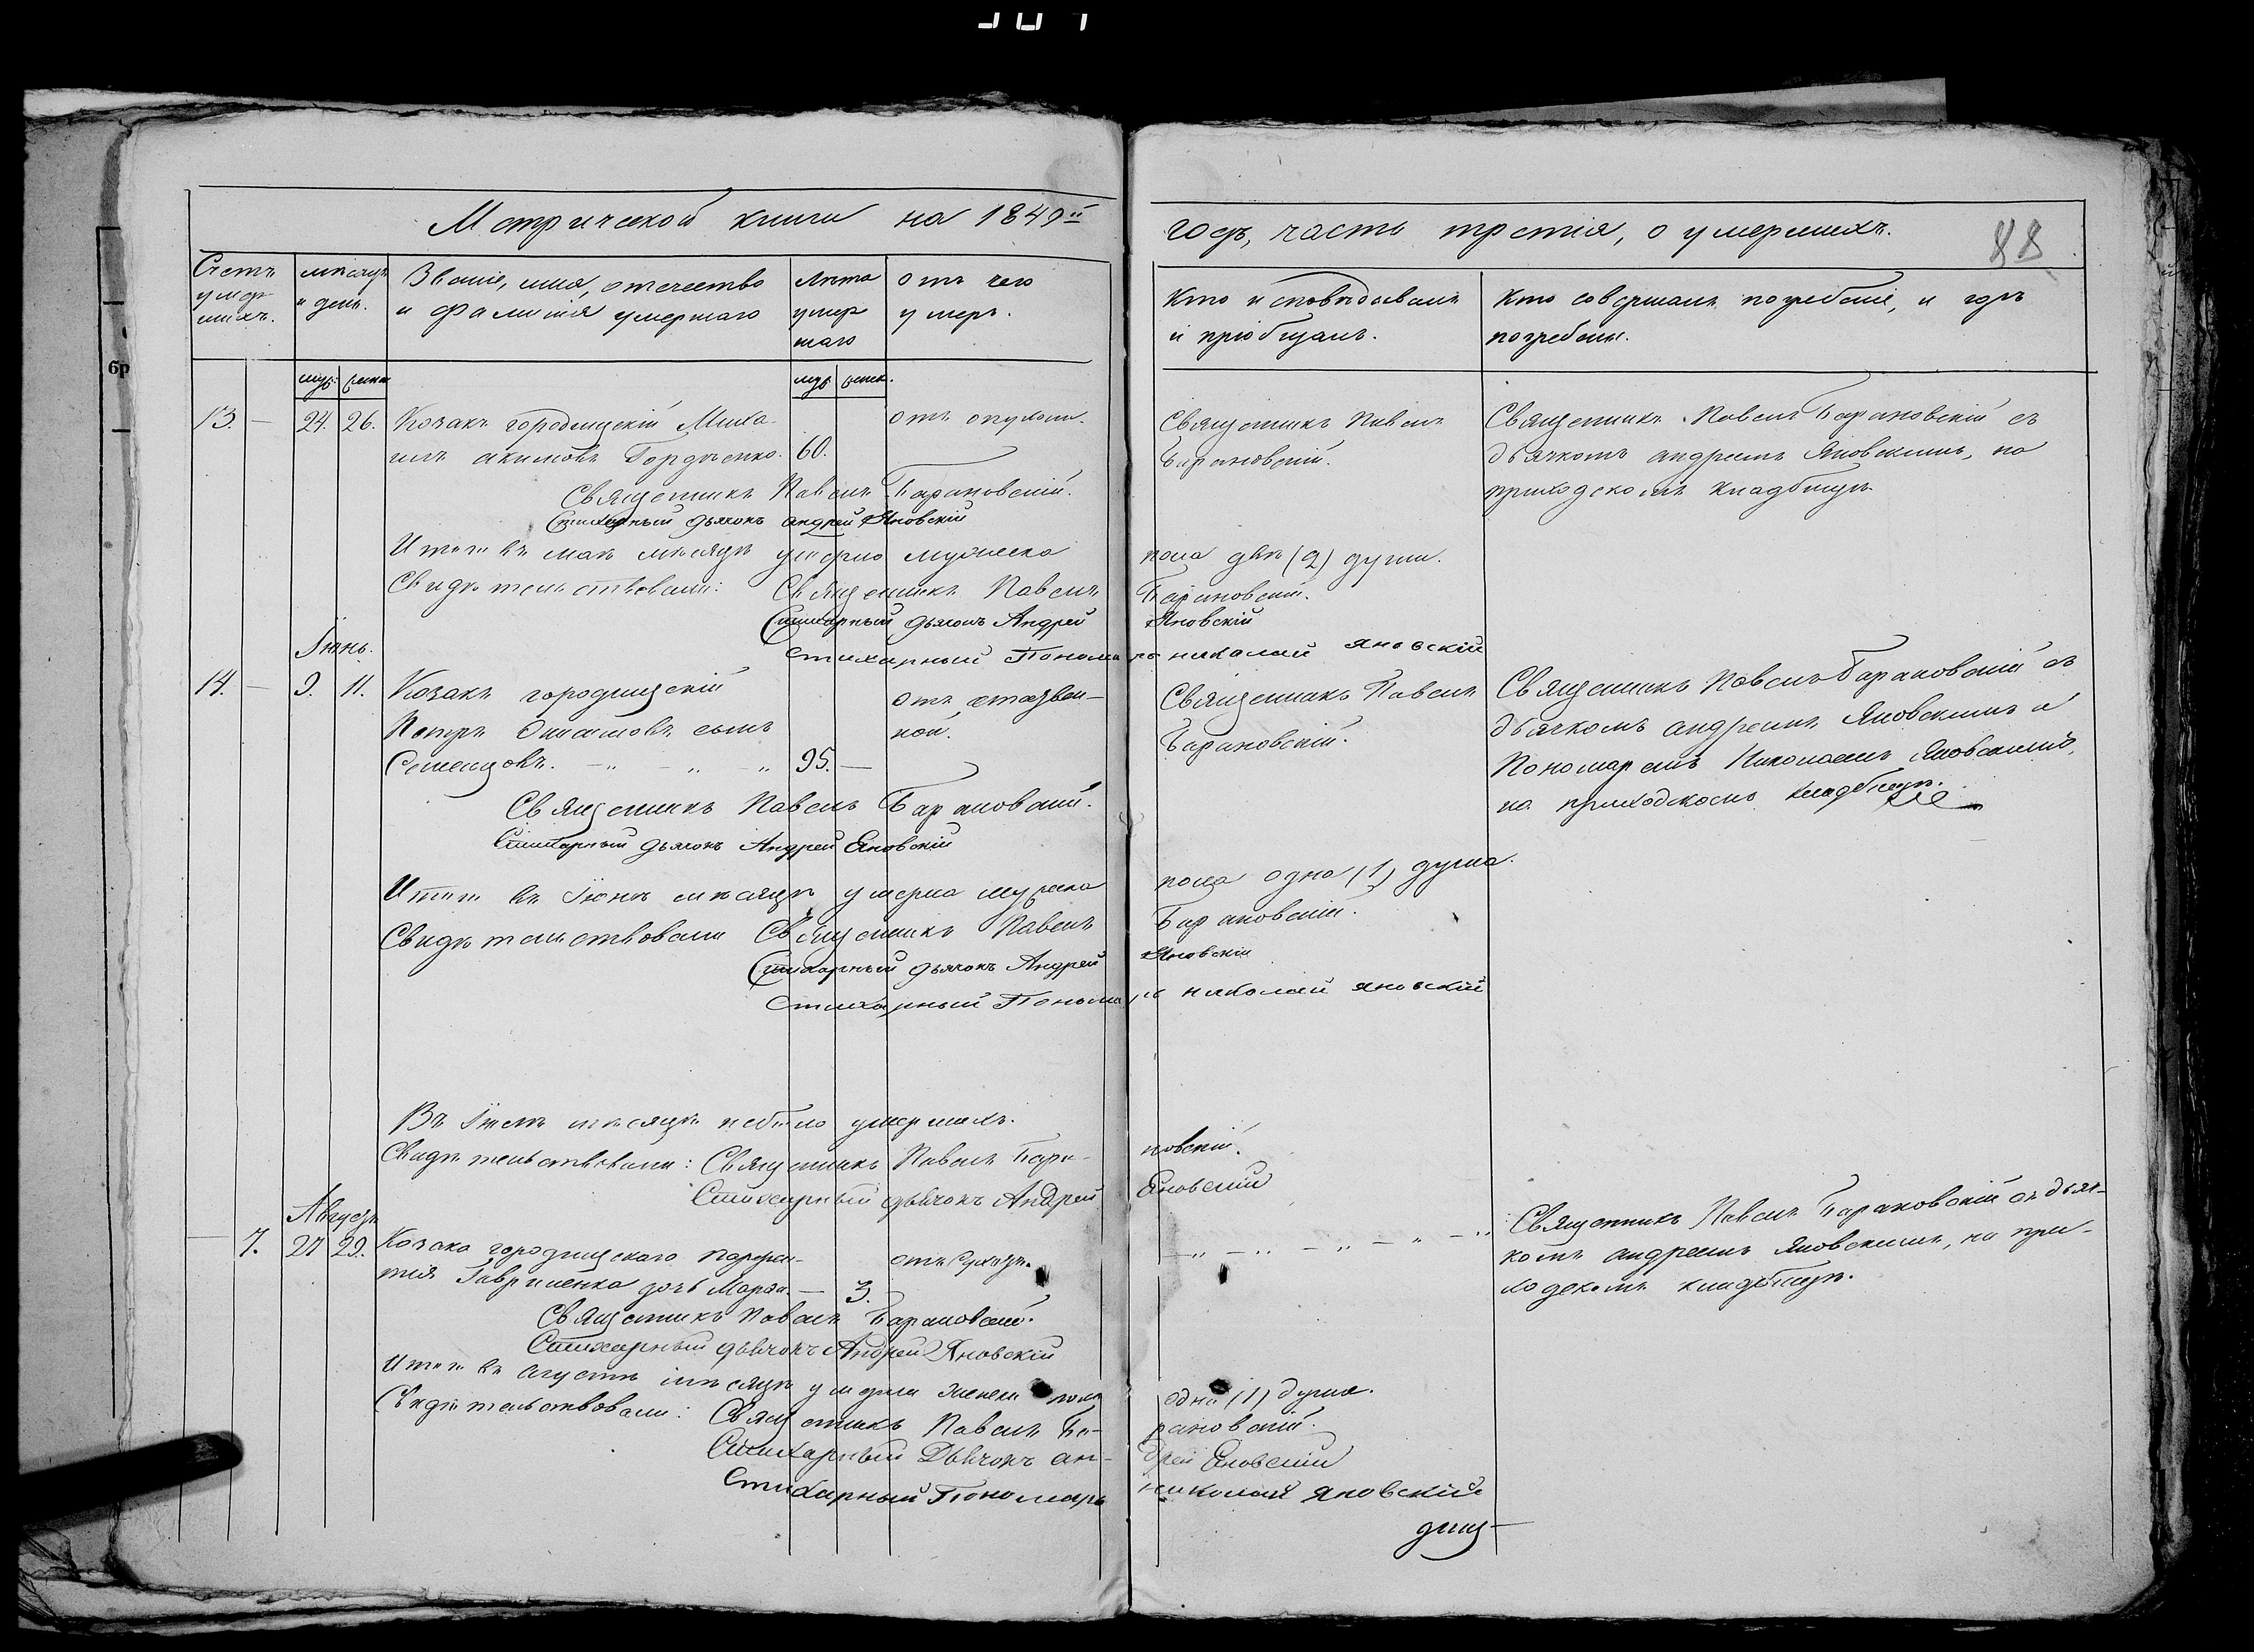 Метрической книги на 1849й
годъ, часть третія, о умершихъ.
88
Счетъ умер- шихъ.
месяцъ и день.
Званіе, имя, отечество
и фамилія умершаго
Лѣта умер шаго
отъ чего
умеръ.
Кто исповѣдывалъ
и пріобщалъ.
Кто совершалъ погребеніе, и гдѣ
погребены.
муж. женск.
13. — 24. 26. Козакъ городищскій Миха-
илъ акимовъ Гордѣенко. 60.
отъ опухоли.
Священникъ Павелъ
Барановскій.
Священникъ Павелъ Барановскій съ
дьячкомъ андреемъ Яновскимъ, на
приходскомъ кладбищѣ.
Священникъ Павелъ Барановскій.
Стихарный дьячокъ андрей Яновскій
Итого въ маѣ мѣсяцѣ умерло мужеска пола двѣ (2) души.
Свидѣтельствовали: Священникъ Павелъ Барановскій.
Стихарный дьячокъ Андрей Яновскій
стихарный Пономарь николай яновскій
Іюнь.
14. — 9. 11. Козакъ городищскій
Петръ сынъ
Семенцовъ. — 95. —
Священникъ Павелъ
Барановскій.
Священникъ Павелъ Барановскій съ
дьячкомъ андреемъ Яновскимъ и
Пономаремъ Николаемъ Яновскимъ,
на приходскомъ кладбищѣ.
Священникъ Павелъ Барановскій.
Стихарный дьячокъ Андрей Яновскій
Итого въ Іюнѣ мѣсяцѣ умерла мужска пола одна (1) душа.
Свидѣтельствовали Священникъ Павелъ Барановскій.
Стихарный дьячокъ Андрей Яновскій
стихарный Пономарь николай яновскій
Въ Іюлѣ мѣсяцѣ небыло умершихъ.
Свидѣтельствовали: Священникъ Павелъ Барановскій.
Стихарный дьячокъ Андрей Яновскій
Августъ
— 7. 27 29. Козака городищскаго Парфен-
тія Гавриленка дочь — 3.
Священникъ Павелъ Барановскій съ дьяч-
комъ андреемъ Яновскимъ, на при-
ходскомъ кладбищѣ.
Священникъ Павелъ Барановскій.
Стихарный дьячокъ Андрей Яновскій
Итого въ августѣ мѣсяцѣ умерла женска пола одна (1) душа.
Свидѣтельствовали: Священникъ Павелъ Барановскій.
Стихарный Дьячокъ андрей Яновскій
Стихарный Пономарь николай яновскій